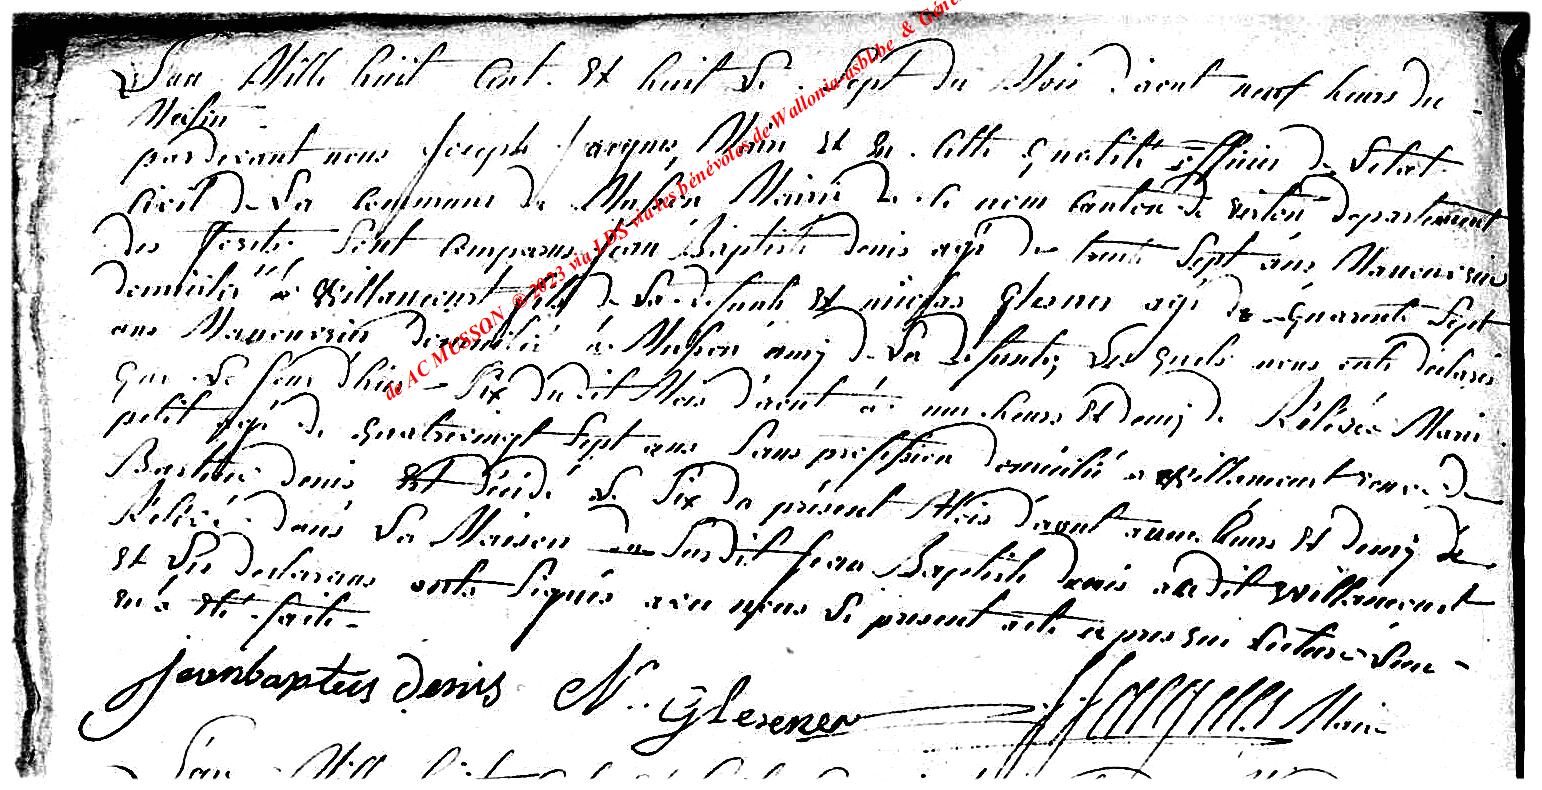 L'an Mille huit Cent Et huit Le Sept du Mois d'aout neuf heurs du
Matin
pardevant nous Joseph Jacques Mair Et En Cette Qualité officier de L'etat
Civil de La Commune de Musson Mairie de ce nom Canton de virton departement
des forets Sont Comparus Jean Baptiste denis agé de trente Sept ans Manouvrier
domicilié a Willancourt fils de La defunte Et nicolas Glesner agé de Quarente Sept
ans Manouvrier domicilié a Musson amy de La defunte, Les Quels nous ont déclarés
Que Le Jour d'hier Six du dit Mois d'aout a une heurs Et demy de Rélévée Marie
petit agé de Quatrevingt Sept ans Sans profession domicilié a Willancourt veuve de
Bastien denis Est décidé Le Six du présent Mois d'aout a une heurs Et demy de
Rélévé dans La Maison du Susdit Jean Baptiste denis audit Willancourt
Et Les declarans onts Signés avec nous Le present acte apres Que Lecture Leur
en a Eté faite
jeanbaptiis denis N. Glesener JJacques Maire
L'an Mill huit
de AC MUSSON © 2023 via LDS via les bénévoles de Wallonia-asbl.be & Géné